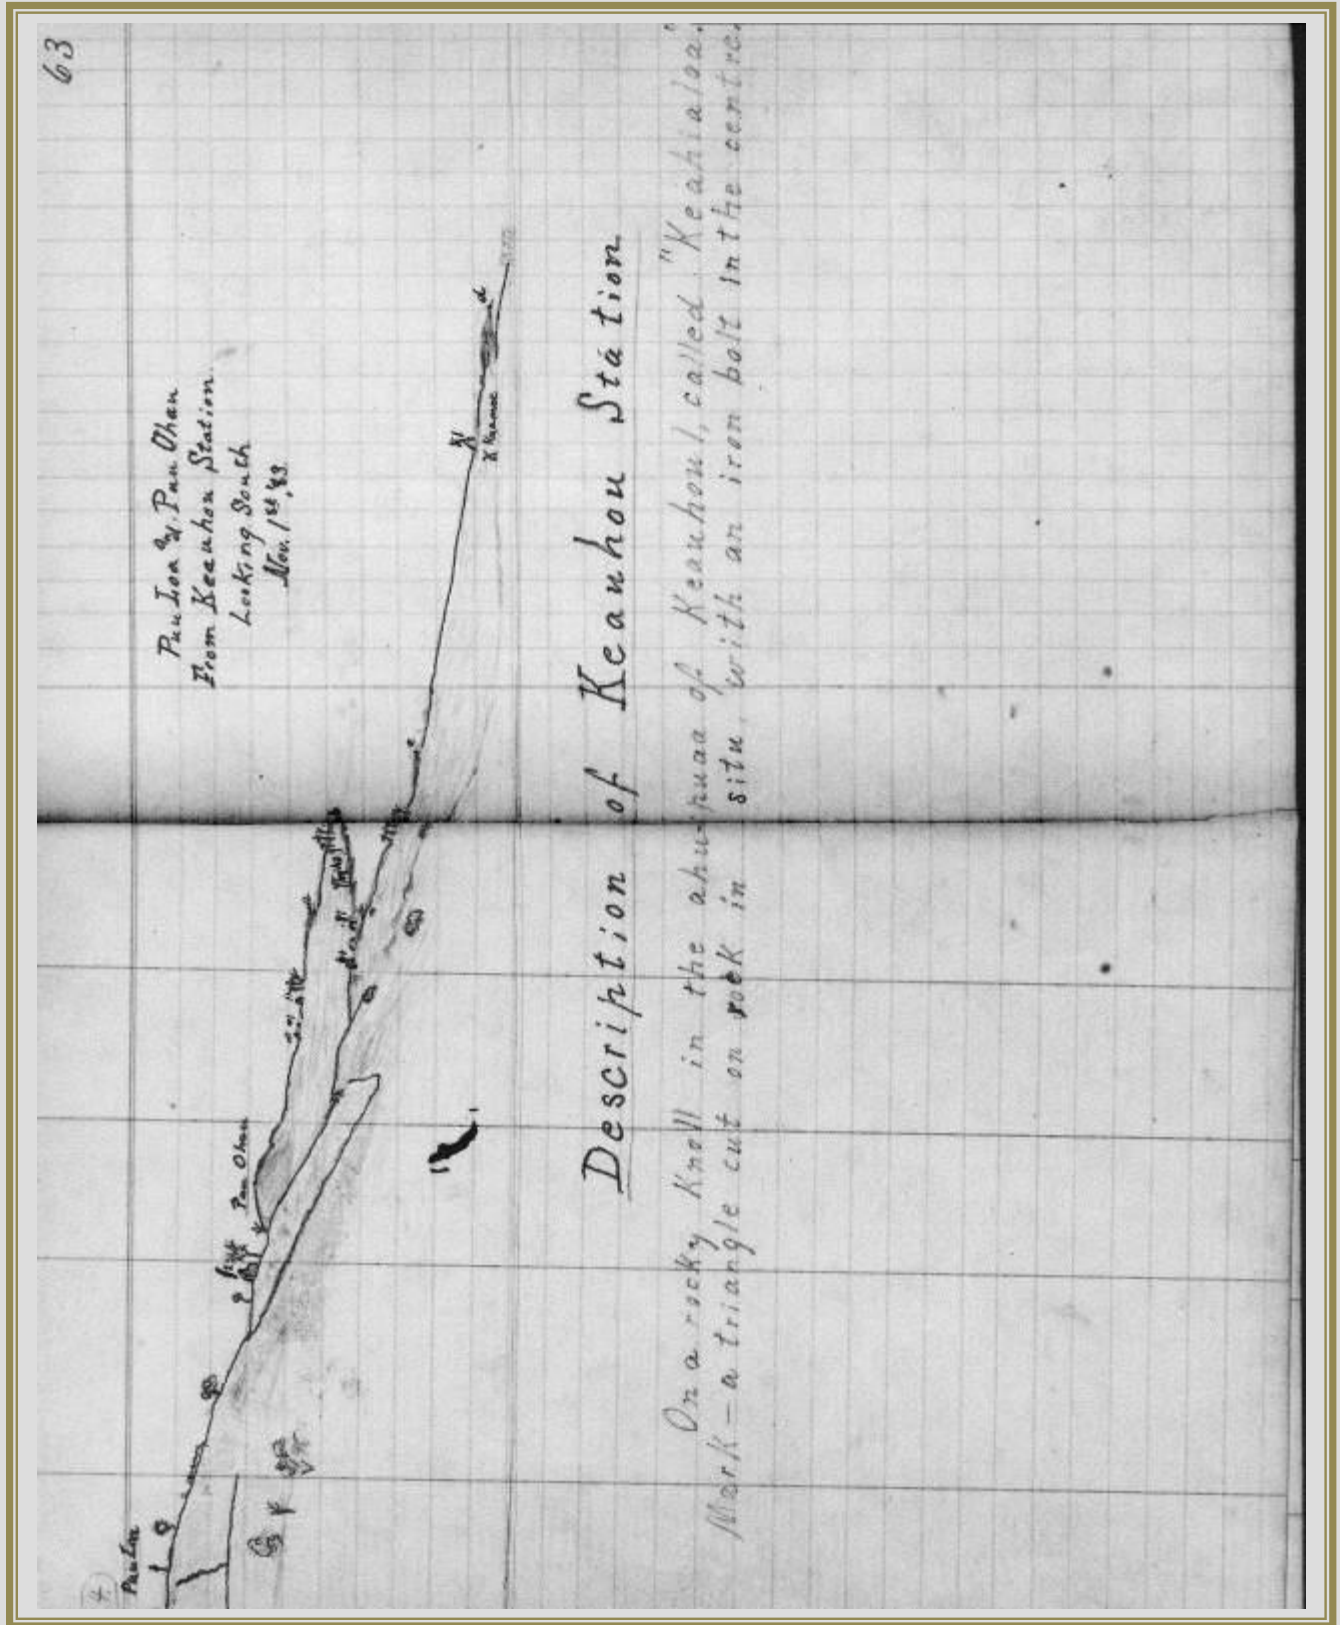 63
Puu Loa & Puu Ohau
From Keauhou Station
Looking South
Nov. 1st '83
Puu Loa
Puu Ohau
Description of Keauhou Station
On a rocky Knoll in the ahu-puaa of Keauhou 1, called "Keahialoa."
Mark – a triangle cut on rock in situ, with an iron bolt in the centre.